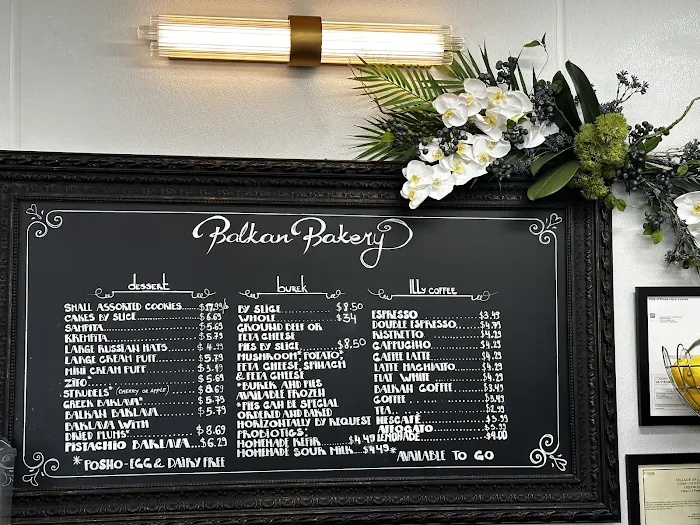 Balkan Bakery
dessert
SMALL ASSORTED COOKIES......$17.99/lb
CAKES BY SLICE..............$6.69
SAMPITA.....................$5.69
KREMPITA....................$5.79
LARGE RUSSIAN HATS..........$4.99
LARGE CREAM PUFF............$5.79
MINI CREAM PUFF.............$3.49
ZITO........................$5.69
STRUDELS* (CHERRY OR APPLE)...$8.69
GREEK BAKLAVA*..............$5.79
BALKAN BAKLAVA..............$5.79
BAKLAVA WITH
DRIED PLUMS.................$8.69
PISTACHIO BAKLAVA...$6.29
*POSHO-EGG & DAIRY FREE
burek
BY SLICE..............$8.50
WHOLE.................$34
GROUND BEEF OR
FETA CHEESE
PIES BY SLICE.........$8.50
MUSHROOM*, POTATO*,
FETA CHEESE, SPINACH
& FETA CHEESE
*BUREK AND PIES
AVAILABLE FROZEN
*PIES CAN BE SPECIAL
ORDERED AND BAKED
HORIZONTALLY BY REQUEST
PROBIOTICS:
HOMEMADE KEFIR......$4.49
HOMEMADE SOUR MILK...$4.49
ILLy COFFEE
ESPRESSO..............$3.49
DOUBLE ESPRESSO.......$4.99
RISTRETTO.............$4.29
CAPPUCINO.............$4.29
CAFFE LATTE...........$4.29
LATTE MACHIATTO.......$4.29
FLAT WHITE............$4.29
BALKAN COFFEE.........$3.49
COFFEE................$3.49
TEA...................$2.99
NESCAFÉ...............$3.99
AFFOGATO..............$5.99
LEMONADE..............$4.00
*AVAILABLE TO GO